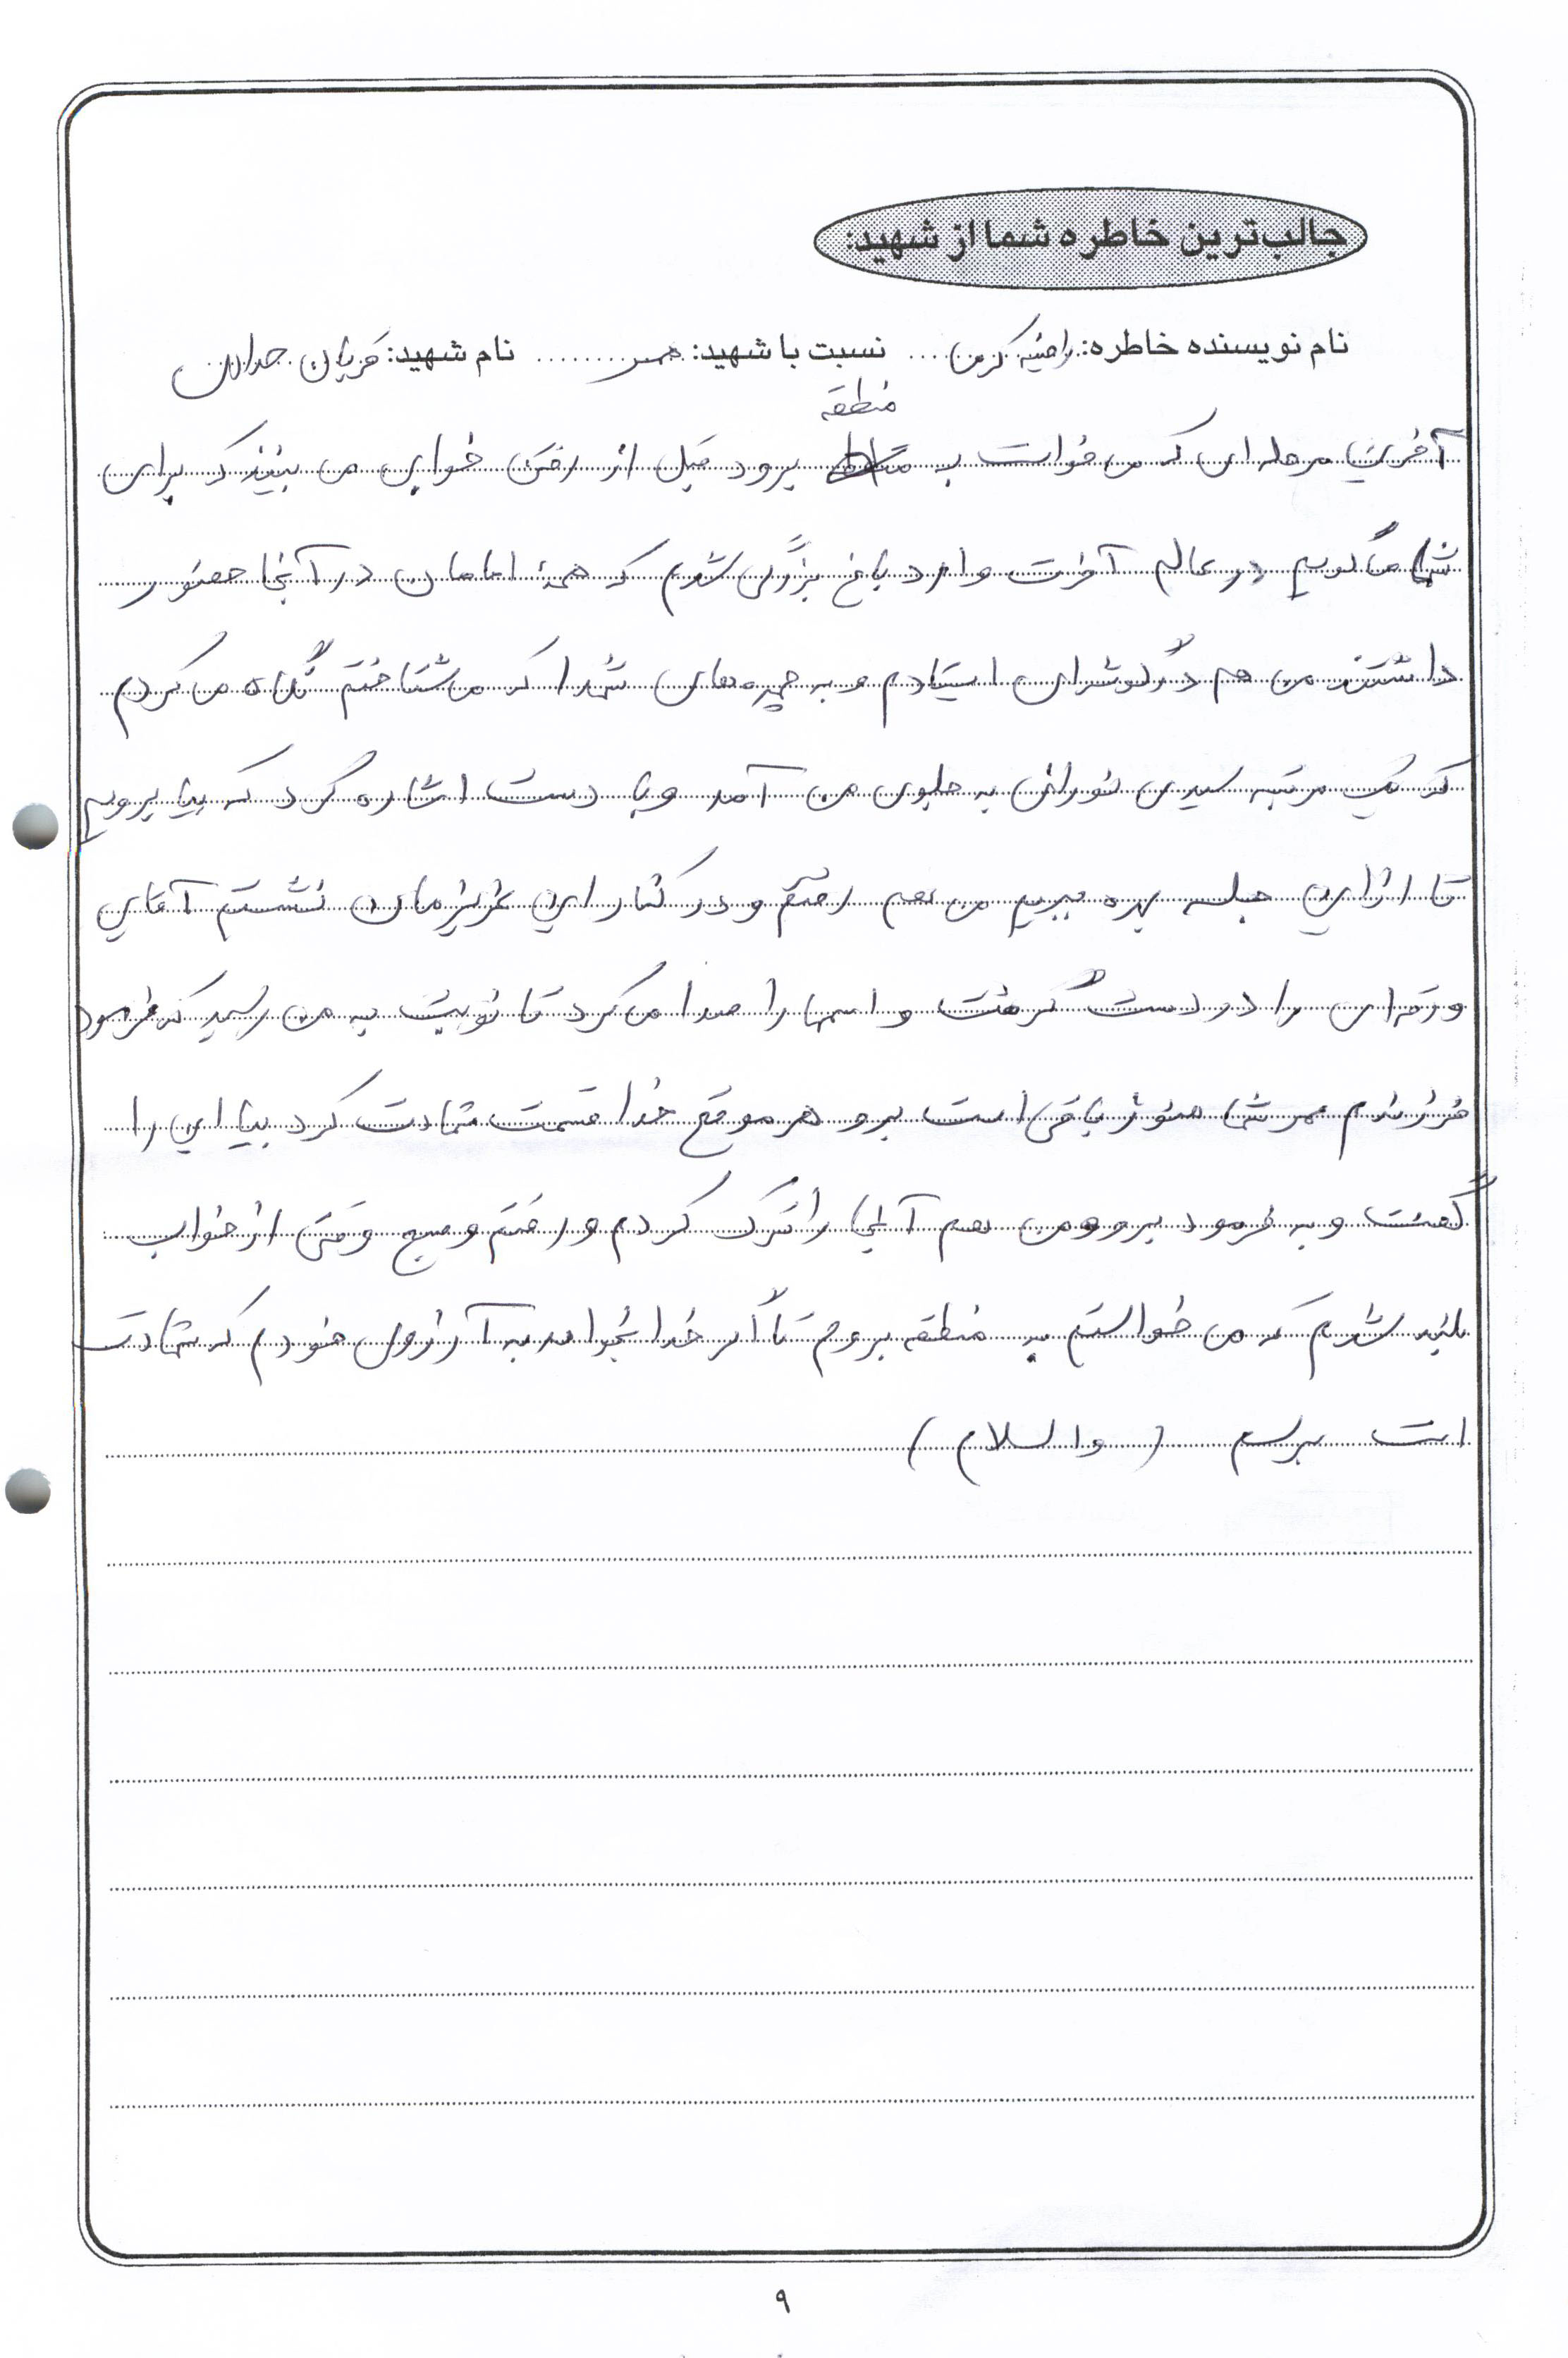 جالب‌ترین خاطره شما از شهید:
نام نویسنده خاطره: راضیه کرمی .... نسبت با شهید: همسر ........ نام شهید: قربان
منطقه
آخرین مرحله ای که می خواست به برود قبل از رفتن خوابی می بیند که برای
شما می گویم در عالم آخرت وارد باغ بزرگی شدم که همۀ امامان در آنجا حضور
داشتند من هم در گوشه ای ایستادم و به چهره های شهدا که می شناختم نگاه می کردم
که یک مرتبه سیدی نورانی به جلوی من آمد و با دست اشاره کرد که بیا برویم
تا از این جلسه بهره ببریم من هم رفتم و در کنار این عزیزمان نشستم آقایی
ورقه ای را در دست گرفت و اسمها را صدا می کرد تا نوبت به من رسید که فرمود
فرزندم عمر شما هنوز باقی است برو هر موقع خدا قسمت شهادت کرد بیا این را
گفت و به فرمود برو و من هم آنجا را ترک کردم و رفتم و صبح وقتی از خواب
بلند شدم که می خواستم به منطقه بروم تا اگر خدا بخواهد به آرزوی خودم که شهادت
است برسم (والسلام)
۹